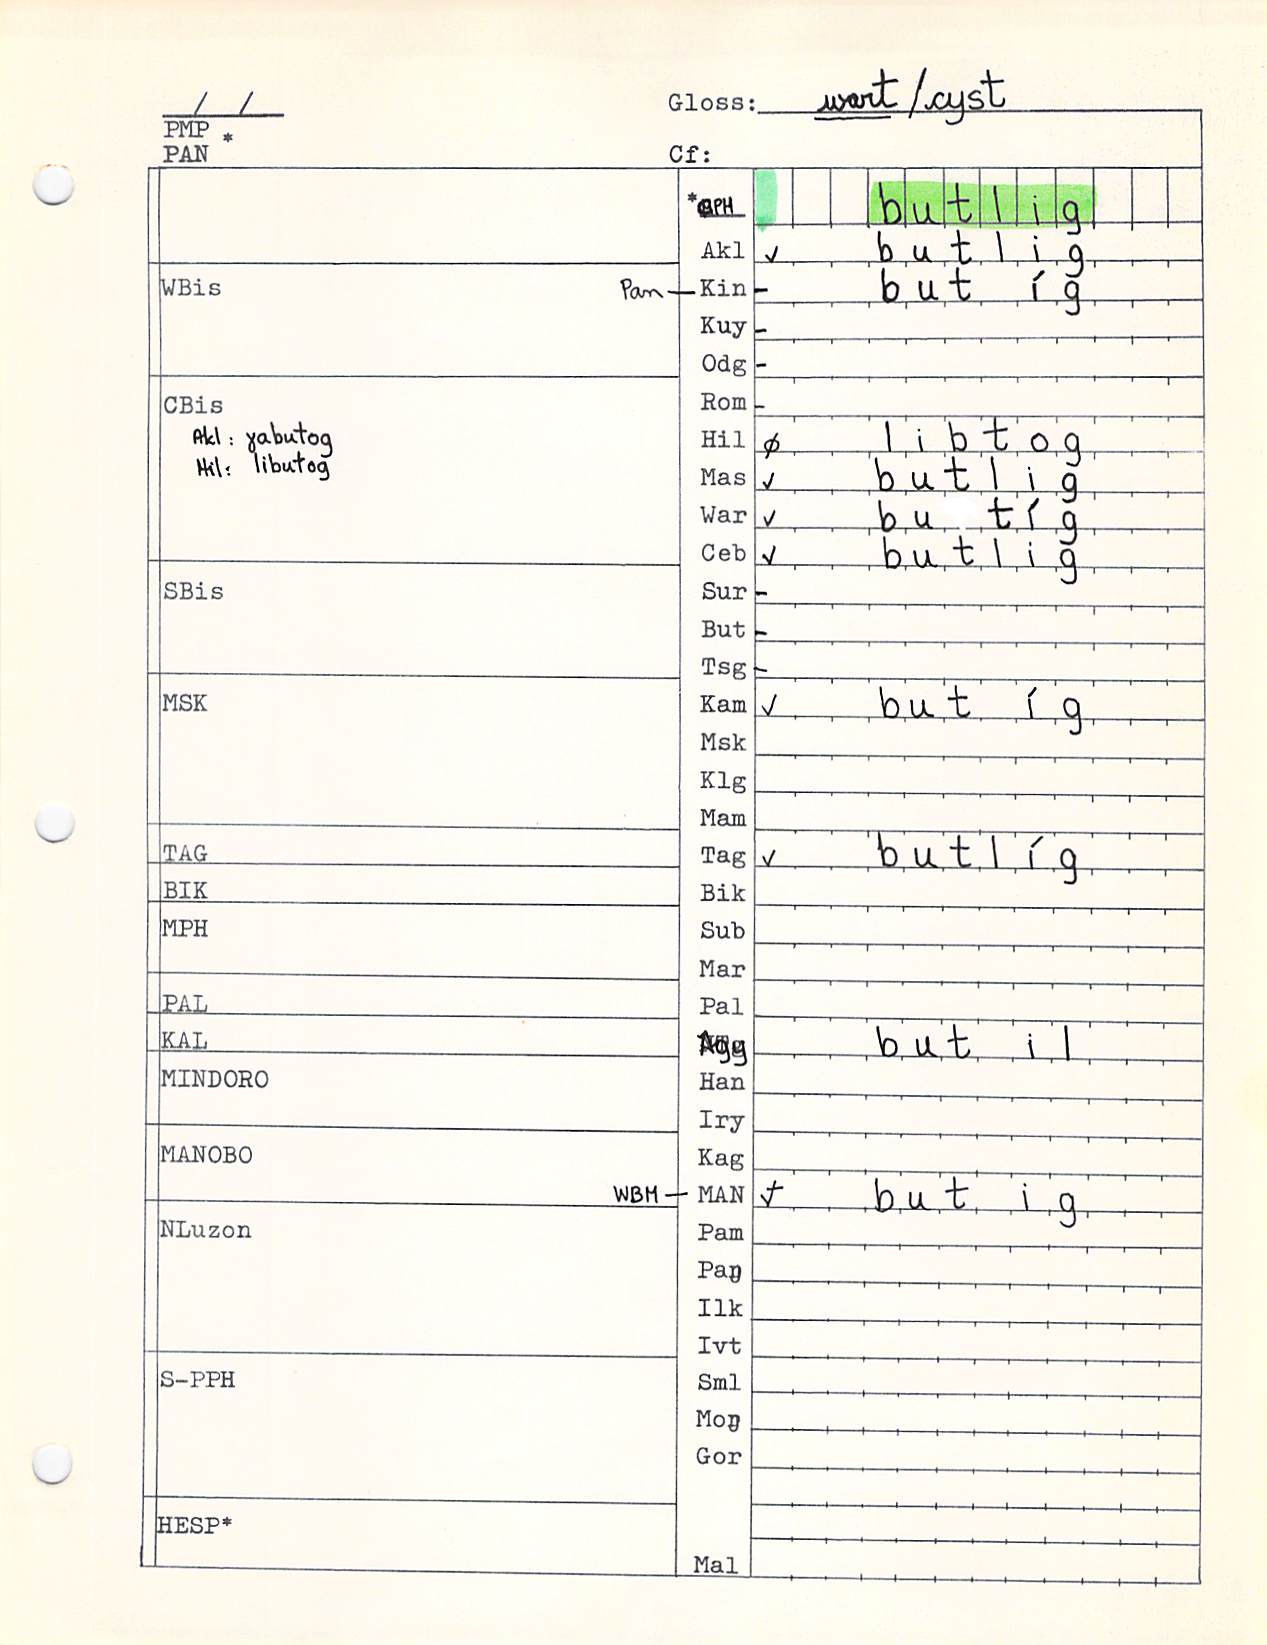 Gloss: wart / cyst
/ /
PMP *
PAN
Cf:
PH butlig
Akl ✓ butlig
WBis
Pan — Kin - but íg
Kuy -
Odg -
Rom -
CBis
Akl: ɣabutog
Hil: libutog
Hil ø libtog
Mas ✓ butlig
War ✓ bu tíg
Ceb ✓ butlig
SBis
Sur -
But -
Tsg -
MSK
Kam ✓ but íg
Msk
Klg
Mam
TAG
Tag ✓ butlíg
BIK
Bik
MPH
Sub
Mar
PAL
Pal
KAL
Agy but il
MINDORO
Han
Iry
MANOBO
Kag
WBM — MAN but ig
NLuzon
Pam
Paŋ
Ilk
Ivt
S-PPH
Sml
Moŋ
Gor
HESP*
Mal